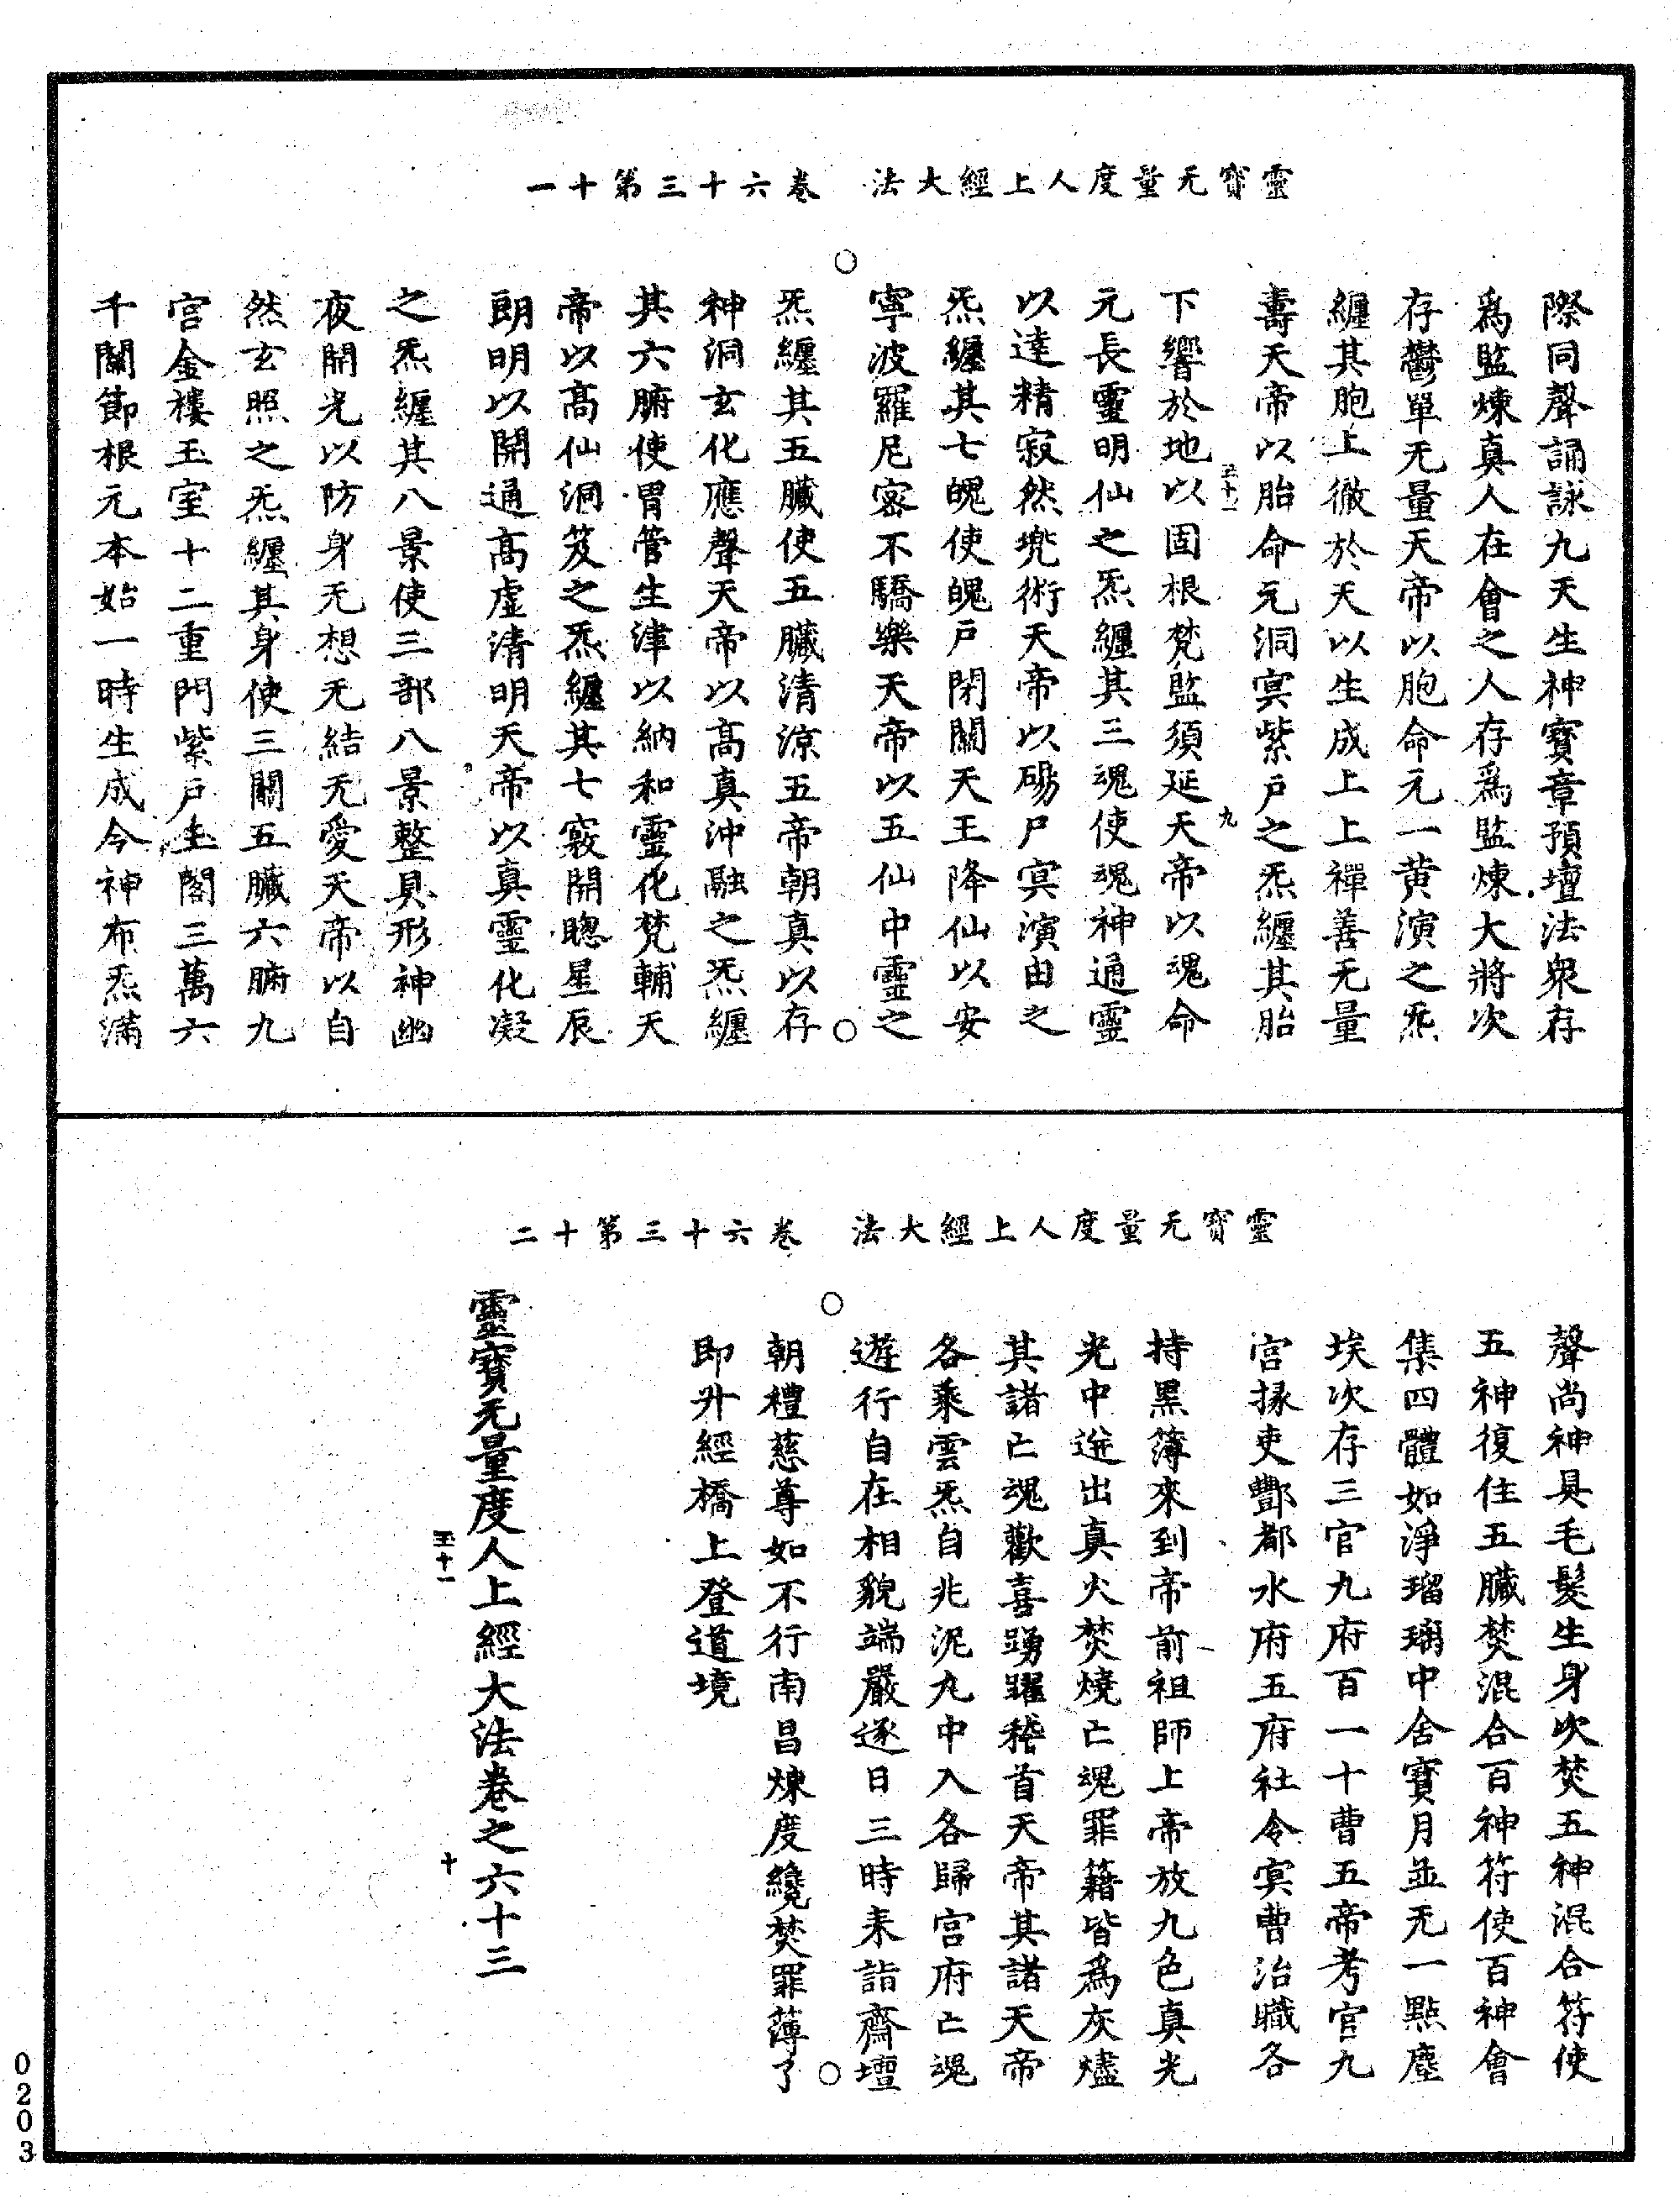 靈寶无量度人上經大法　卷六十三第十一
際同聲誦詠九天生神寶章預壇法眾存
爲監煉真人在會之人存爲監煉大將次
存鬱單无量天帝以胞命元一黃演之炁
纏其胞上徹於天以生成上上禪善无量
壽天帝以胎命元洞冥紫戶之炁纏其胎
至十一
九
下響於地以固根梵監須延天帝以魂命
元長靈明仙之炁纏其三魂使魂神通靈
以達精寂然兠術天帝以碭尸冥演由之
炁纏其七魄使魄戶閉關天王降仙以安
寧波羅尼密不驕樂天帝以五仙中靈之
炁纏其五臟使五臟清涼五帝朝真以存
神洞玄化應聲天帝以高真沖融之炁纏
其六腑使胃管生津以納和靈化梵輔天
帝以高仙洞笈之炁纏其七竅開聰星辰
朗明以開通高虛清明天帝以真靈化凝
之炁纏其八景使三部八景整具形神幽
夜開光以防身无想无結无愛天帝以自
然玄照之炁纏其身使三關五臟六腑九
宮金樓玉室十二重門紫戶圭閣三萬六
千關節根元本始一時生成今神布炁滿
靈寶无量度人上經大法　卷六十三第十二
聲尚神具毛髮生身次焚五神混合符使
五神復住五臟焚混合百神符使百神會
集四體如淨瑠璃中舍寶月並无一點塵
埃次存三官九府百一十曹五帝考官九
宮掾吏酆都水府五府社令冥曹治職各
持黑簿來到帝前祖師上帝放九色真光
光中迸出真火焚燒亡魂罪籍皆爲灰燼
其諸亡魂歡喜踴躍稽首天帝其諸天帝
各乘雲炁自兆泥丸中入各歸宮府亡魂
遊行自在相貌端嚴逐日三時来詣齋壇
朝禮慈尊如不行南昌煉度纔焚罪薄了
即升經橋上登道境
靈寶无量度人上經大法卷之六十三
至十一
十
0203